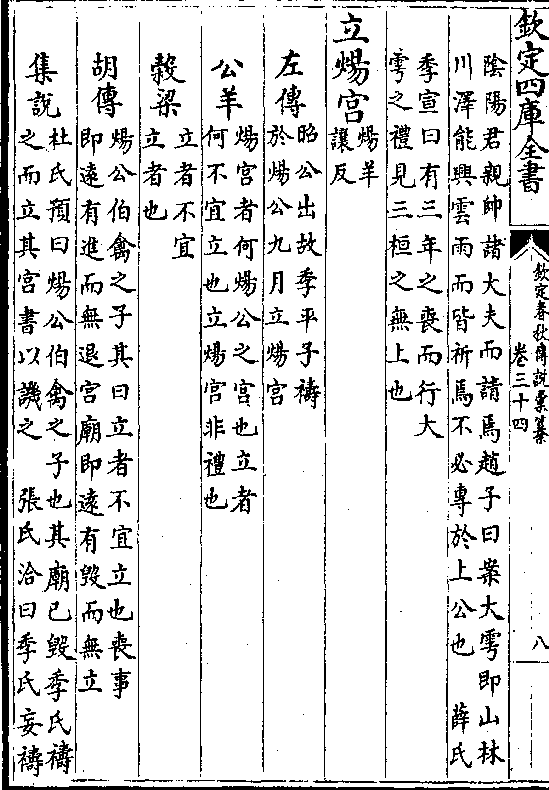 欽定四庫全書
欽定春秋傳說彙纂
卷三十四
八
陰陽君親帥諸大夫而請焉趙子曰案大雩即山林
川澤能興雲雨而皆祈焉不必專於上公也　薛氏
季宣曰有三年之喪而行大
雩之禮見三桓之無上也
立煬宮
煬羊
讓反
左傳
昭公出故季平子禱
於煬公九月立煬宮
公羊
煬宮者何煬公之宮也立者
何不宜立也立煬宮非禮也
榖梁
立者不宜
立者也
胡傳
煬公伯禽之子其曰立者不宜立也喪事
即遠有進而無退宮廟即遠有毀而無立
集說
杜氏預曰煬公伯禽之子也其廟已毀季氏禱
之而立其宮書以譏之　張氏洽曰季氏妄禱